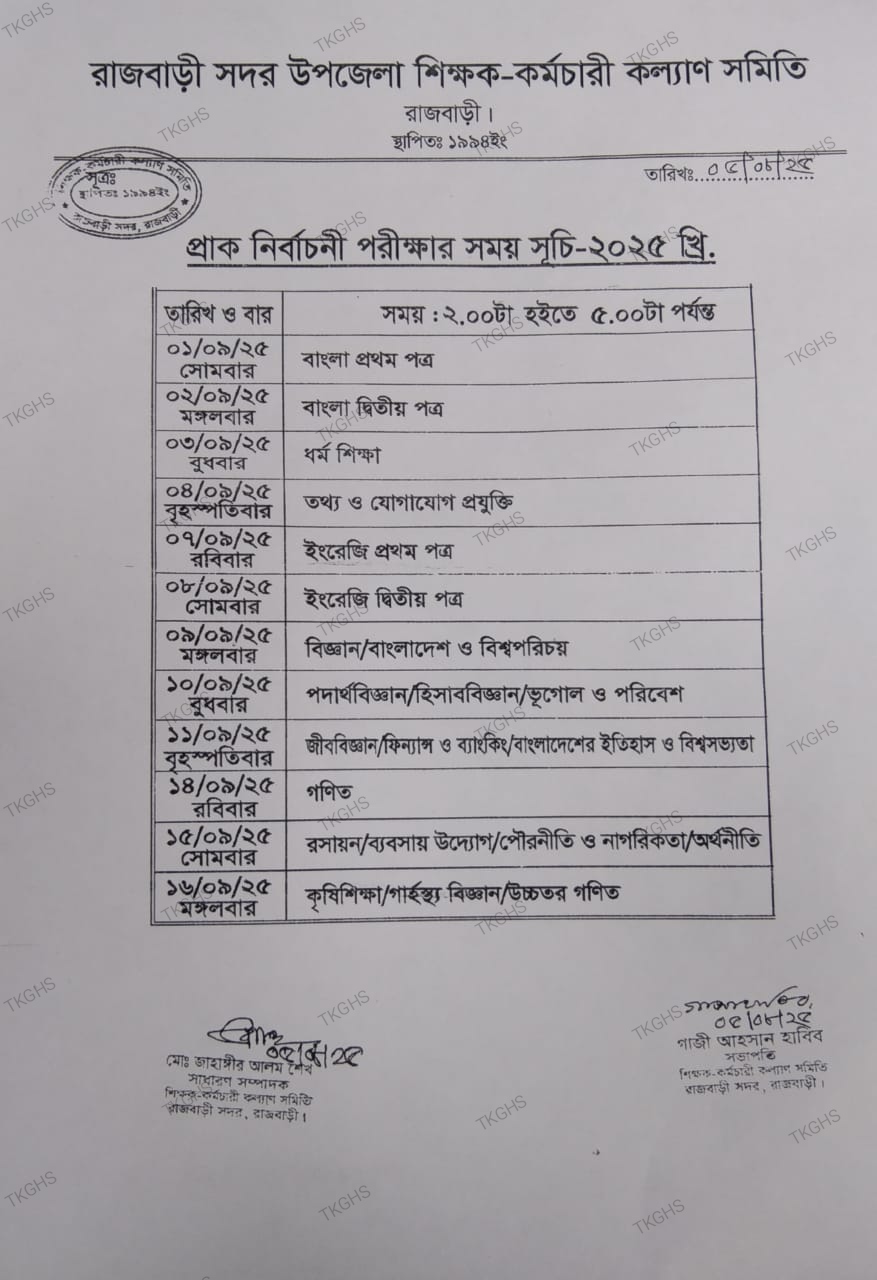 রাজবাড়ী সদর উপজেলা শিক্ষক-কর্মচারী কল্যাণ সমিতি
রাজবাড়ী।
স্থাপিতঃ ১৯৯৪ইং
শিক্ষক-কর্মচারী কল্যাণ সমিতি
সূত্রঃ
স্থাপিতঃ ১৯৯৪ইং
রাজবাড়ী সদর, রাজবাড়ী
তারিখঃ ০৫/০৮/২৫
প্রাক নির্বাচনী পরীক্ষার সময় সূচি-২০২৫ খ্রি.
তারিখ ও বার সময় : ২.০০টা হইতে ৫.০০টা পর্যন্ত
০১/০৯/২৫
সোমবার
বাংলা প্রথম পত্র
০২/০৯/২৫
মঙ্গলবার
বাংলা দ্বিতীয় পত্র
০৩/০৯/২৫
বুধবার
ধর্ম শিক্ষা
০৪/০৯/২৫
বৃহস্পতিবার
তথ্য ও যোগাযোগ প্রযুক্তি
০৭/০৯/২৫
রবিবার
ইংরেজি প্রথম পত্র
০৮/০৯/২৫
সোমবার
ইংরেজি দ্বিতীয় পত্র
০৯/০৯/২৫
মঙ্গলবার
বিজ্ঞান/বাংলাদেশ ও বিশ্বপরিচয়
১০/০৯/২৫
বুধবার
পদার্থবিজ্ঞান/হিসাববিজ্ঞান/ভূগোল ও পরিবেশ
১১/০৯/২৫
বৃহস্পতিবার
জীববিজ্ঞান/ফিন্যান্স ও ব্যাংকিং/বাংলাদেশের ইতিহাস ও বিশ্বসভ্যতা
১৪/০৯/২৫
রবিবার
গণিত
১৫/০৯/২৫
সোমবার
রসায়ন/ব্যবসায় উদ্যোগ/পৌরনীতি ও নাগরিকতা/অর্থনীতি
১৬/০৯/২৫
মঙ্গলবার
কৃষিশিক্ষা/গার্হস্থ্য বিজ্ঞান/উচ্চতর গণিত
০৫/০৮/২৫
মোঃ জাহাঙ্গীর আলম শেখ
সাধারণ সম্পাদক
শিক্ষক-কর্মচারী কল্যাণ সমিতি
রাজবাড়ী সদর, রাজবাড়ী।
০৫/০৮/২৫
গাজী আহসান হাবিব
সভাপতি
শিক্ষক-কর্মচারী কল্যাণ সমিতি
রাজবাড়ী সদর, রাজবাড়ী।
TKGHS